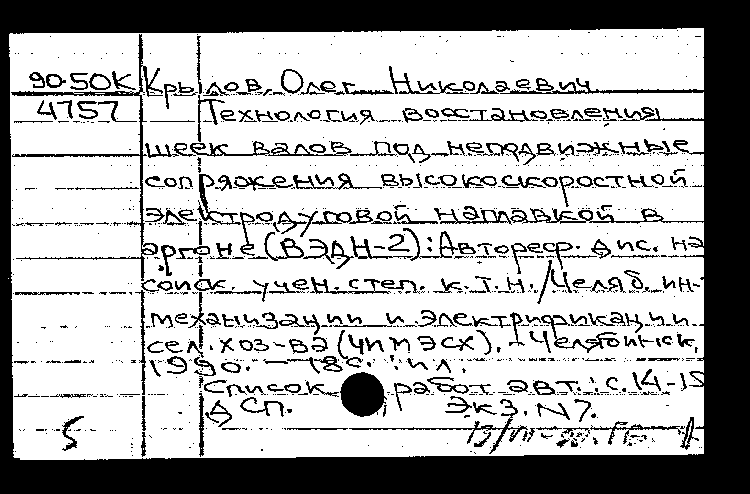 90-50К Крылов, Олег Николаевич
4757 Технология восстановления
шеек валов под неподвижные
сопряжения высокоскоростной
электродуговой наплавкой в
аргоне (ВЭДН-2): Автореф. дис. на
соиск. учен. степ. к.т.н. / Челяб. ин-т
механизации и электрификации
сел. хоз-ва (ЧИМЭСХ). - Челябинск,
1990. — 18с. : ил.
Список работ авт.: с. 14-15
ДСП. Экз. N7.
5